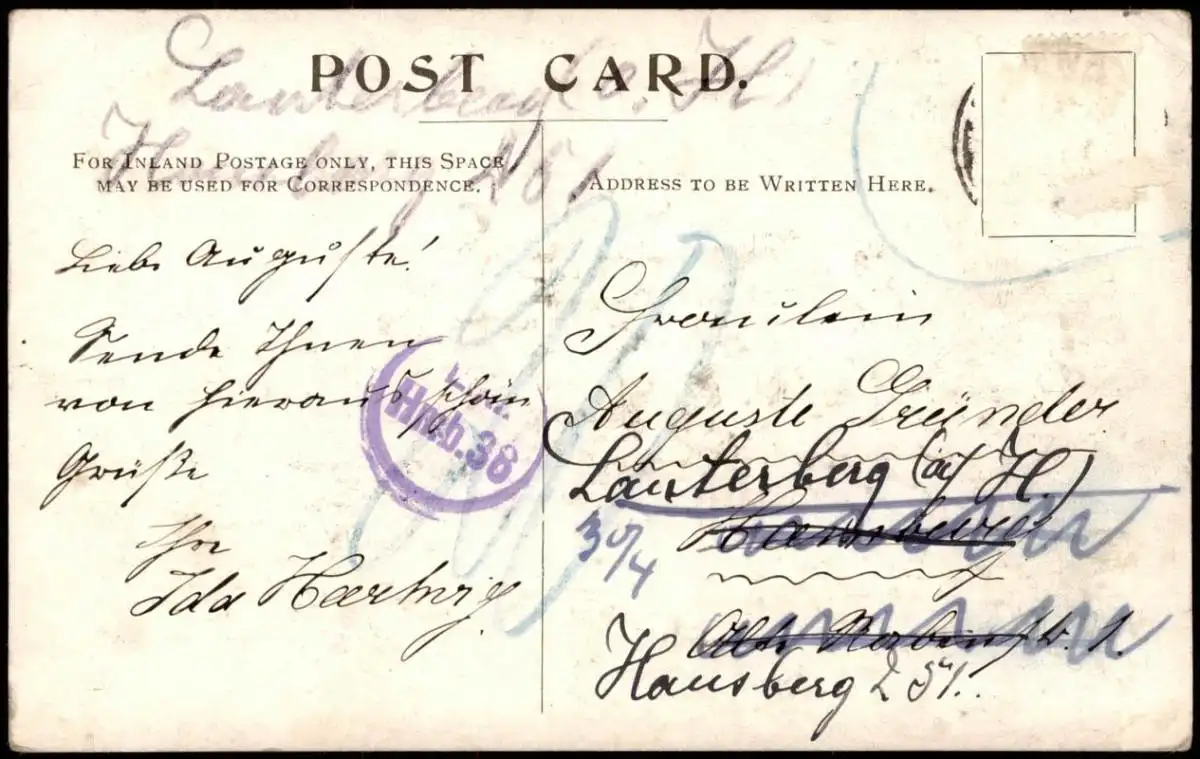 Lauterberg a. H.
POST CARD.
Hausberg 251
FOR INLAND POSTAGE ONLY, THIS SPACE
MAY BE USED FOR CORRESPONDENCE.
ADDRESS TO BE WRITTEN HERE.
Liebe Auguste!
Sende Ihnen
von hieraus schön
Grüße
Ihre
Ida Hartwig.
Hmb. 38
Fräulein
Auguste Gründer
Lauterberg (a/ H.)
Hamburg
30/4
Alte Rabenstr. 1.
Hausberg 251.